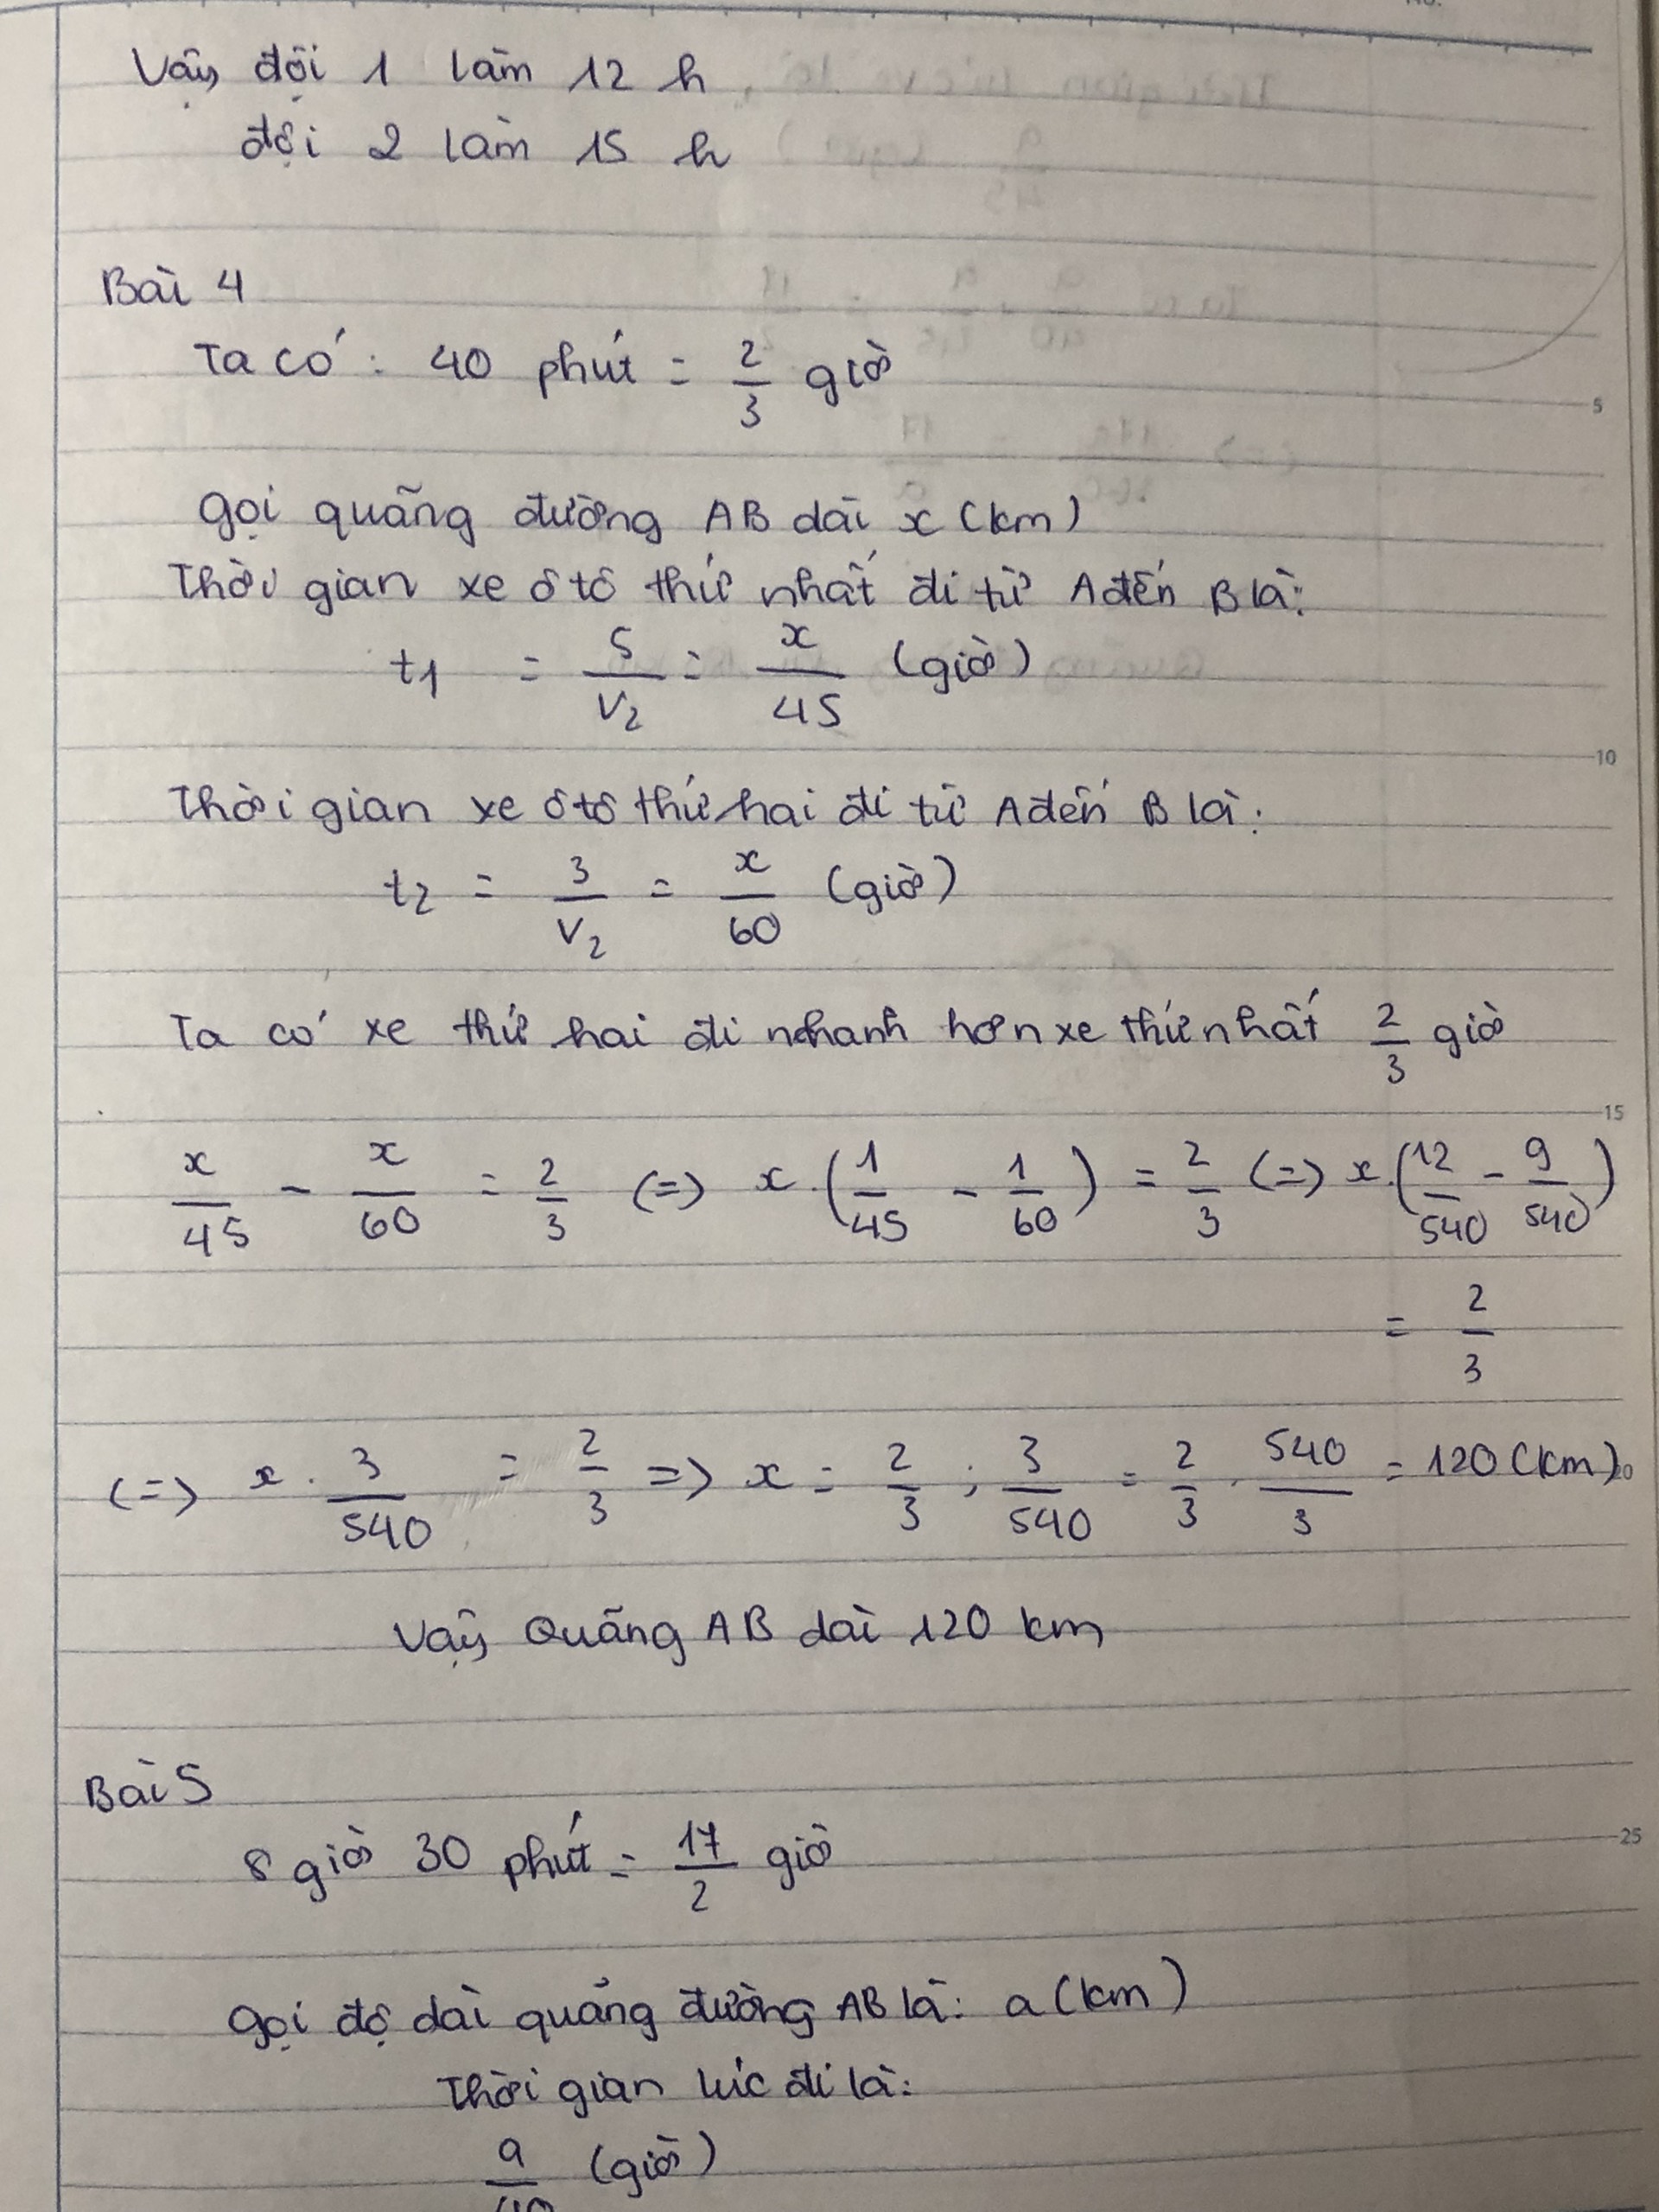 Vậy đội 1 làm 12 h
đội 2 làm 15 h
Bài 4
Ta có : 40 phút = 2/3 giờ
Gọi quãng đường AB dài x (km)
Thời gian xe ô tô thứ nhất đi từ A đến B là:
t1 = S/V2 = x/45 (giờ)
Thời gian xe ô tô thứ hai đi từ A đến B là:
t2 = 3/V2 = x/60 (giờ)
Ta có xe thứ hai đi nhanh hơn xe thứ nhất 2/3 giờ
x/45 - x/60 = 2/3 (=) x.(1/45 - 1/60) = 2/3 (=) x.(12/540 - 9/540)
= 2/3
(=) x . 3/540 = 2/3 => x = 2/3 : 3/540 = 2/3 . 540/3 = 120 (km)
Vậy Quãng AB dài 120 km
Bài 5
8 giờ 30 phút = 17/2 giờ
Gọi độ dài quảng đường AB là: a (km)
Thời gian lúc đi là:
a/40 (giờ)
5
10
15
20
25